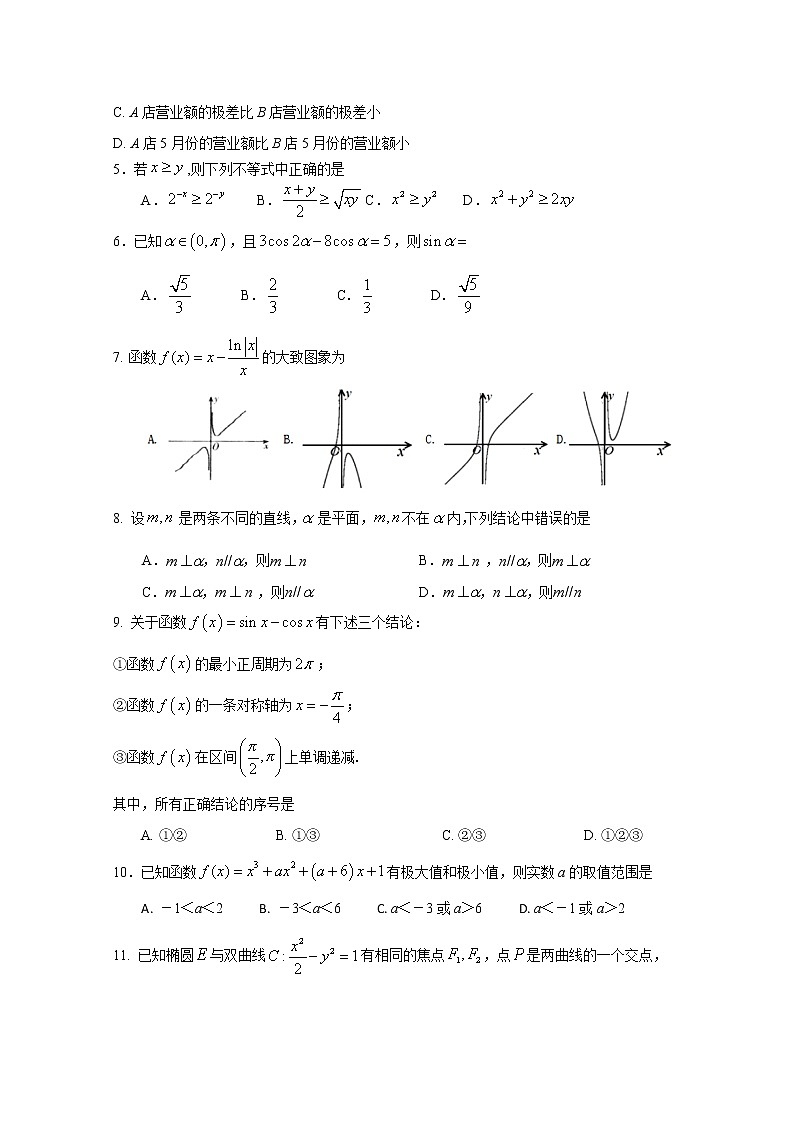 C. A店营业额的极差比B店营业额的极差小
D. A店5月份的营业额比B店5月份的营业额小
5．若 x ≥ y ,则下列不等式中正确的是
A．2⁻ˣ ≥ 2⁻ʸ B．(x+y)/2 ≥ √xy C．x² ≥ y² D．x² + y² ≥ 2xy
6．已知 α∈(0,π)，且 3cos 2α − 8cos α = 5，则 sin α =
A．√5/3 B．2/3 C．1/3 D．√5/9
7. 函数 f(x) = x − ln|x|/x 的大致图象为
A. y O x B. y O x C. y O x D. y O x
8. 设 m,n 是两条不同的直线，α 是平面，m,n 不在 α 内，下列结论中错误的是
A．m⊥α，n//α，则m⊥n B．m⊥n ，n//α，则m⊥α
C．m⊥α，m⊥n ，则n//α D．m⊥α，n⊥α，则m//n
9. 关于函数 f(x) = sin x − cos x 有下述三个结论：
①函数 f(x) 的最小正周期为 2π；
②函数 f(x) 的一条对称轴为 x = −π/4；
③函数 f(x) 在区间 (π/2,π) 上单调递减.
其中，所有正确结论的序号是
A. ①② B. ①③ C. ②③ D. ①②③
10．已知函数 f(x) = x³ + ax² + (a+6)x + 1 有极大值和极小值，则实数 a 的取值范围是
A. －1＜a＜2 B. －3＜a＜6 C. a＜－3 或 a＞6 D. a＜－1 或 a＞2
11. 已知椭圆 E 与双曲线 C : x²/2 − y² = 1 有相同的焦点 F₁,F₂，点 P 是两曲线的一个交点，